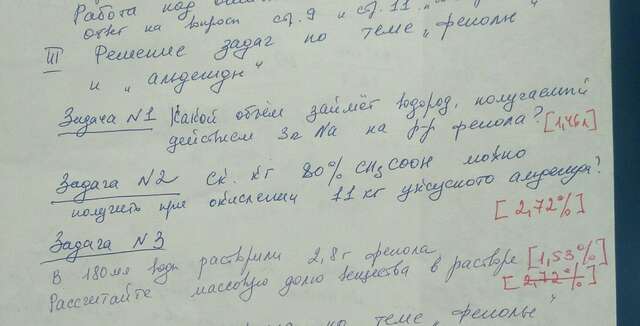 Работа над
ответ на вопрос стр. 9 и стр. 11 „фенолы"
III Решение задач по теме „фенолы"
и „альдегиды"
Задача N1 Какой объём займёт водород, получаемый
действием 3г Na на р-р фенола? [1,46л]
Задача N2 Ск. кг 80% CH3COOH можно
получить при окислении 11 кг уксусного альдегида?
[2,72%]
Задача N3
В 180мл воды растворили 2,8г фенола
Рассчитайте массовую долю вещества в растворе [1,53%]
[2,72%]
по теме „фенолы"